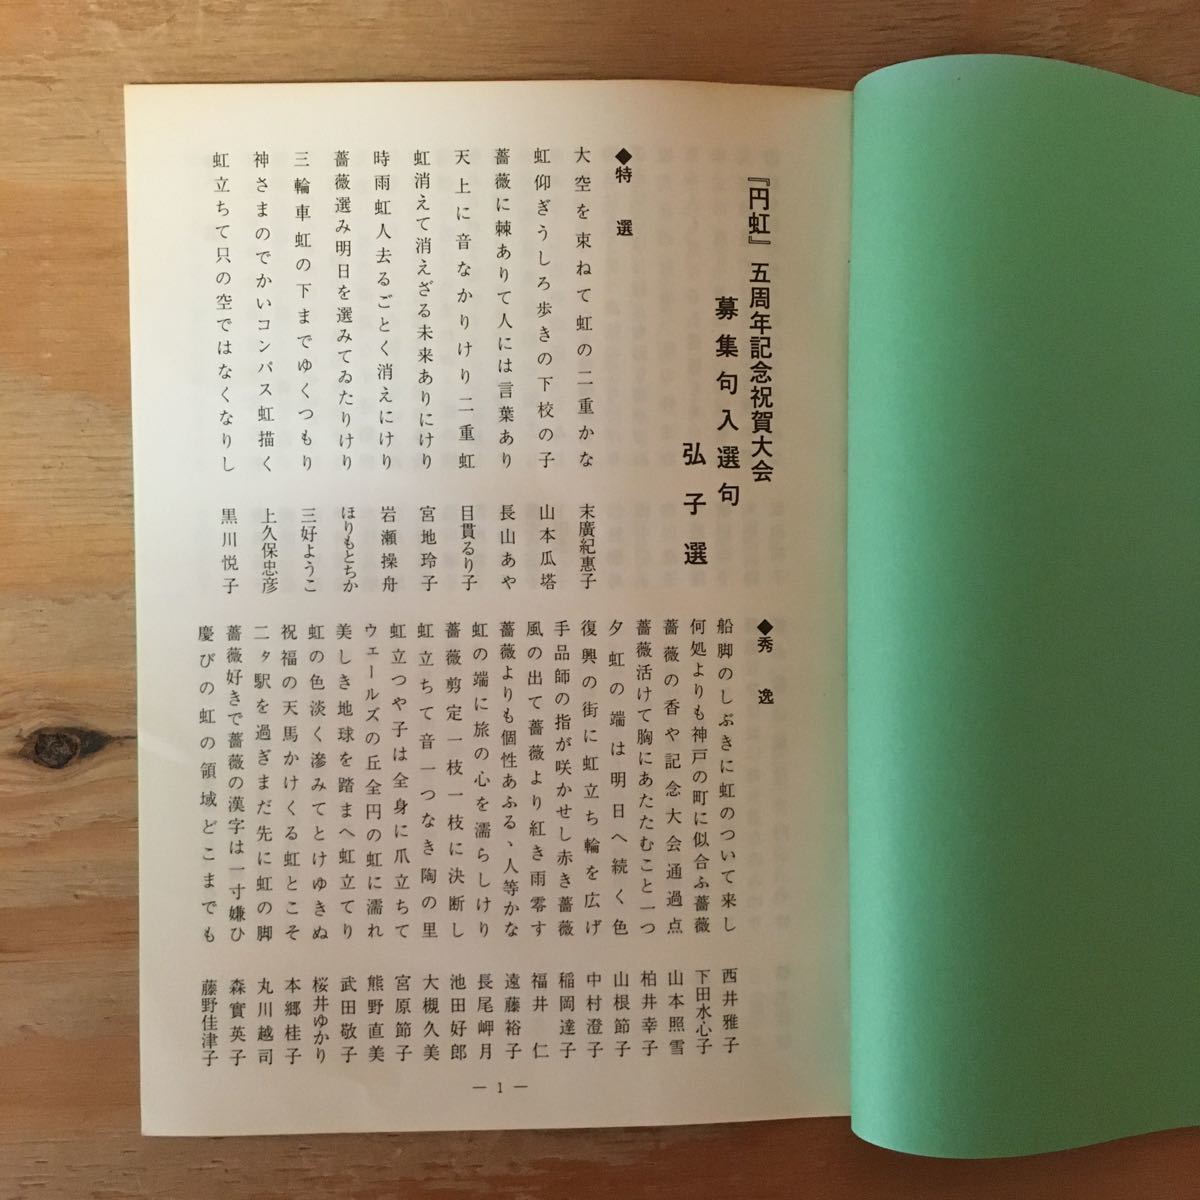 『円虹』五周年記念祝賀大会
募集句入選句
弘子選
◆特　選
大空を束ねて虹の二重かな　末廣紀惠子
虹仰ぎうしろ歩きの下校の子　山本瓜塔
薔薇に棘ありて人には言葉あり　長山あや
天上に音なかりけり二重虹　日貫るり子
虹消えて消えざる未来ありにけり　宮地玲子
時雨虹人去るごとく消えにけり　岩瀬操舟
薔薇選み明日を選みてゐたりけり　ほりもとちか
三輪車虹の下までゆくつもり　三好ようこ
神さまのでかいコンパス虹描く　上久保忠彦
虹立ちて只の空ではなくなりし　黒川悦子
◆秀　逸
船脚のしぶきに虹のついて来し　西井雅子
何処よりも神戸の町に似合ふ薔薇　下田水心子
薔薇の香や記念大会通過点　山本照雪
薔薇活けて胸にあたたむこと一つ　柏井幸子
夕虹の端は明日へ続く色　山根節子
復興の街に虹立ち輪を広げ　中村澄子
手品師の指が咲かせし赤き薔薇　稲岡達子
風の出て薔薇より紅き雨零す　福井　仁
薔薇よりも個性あふる、人等かな　遠藤裕子
虹の端に旅の心を濡らしけり　長尾岬月
薔薇剪定一枝一枝に決断し　池田好郎
虹立ちて音一つなき陶の里　大槻久美
虹立つや子は全身に爪立ちて　宮原節子
ウェールズの丘全円の虹に濡れ　熊野直美
美しき地球を踏まへ虹立てり　武田敬子
虹の色淡く滲みてとけゆきぬ　桜井ゆかり
祝福の天馬かけくる虹とこそ　本郷桂子
二ヶ駅を過ぎまだ先に虹の脚　丸川越司
薔薇好きで薔薇の漢字は一寸嫌ひ　森實英子
慶びの虹の領域どこまでも　藤野佳津子
— 1 —